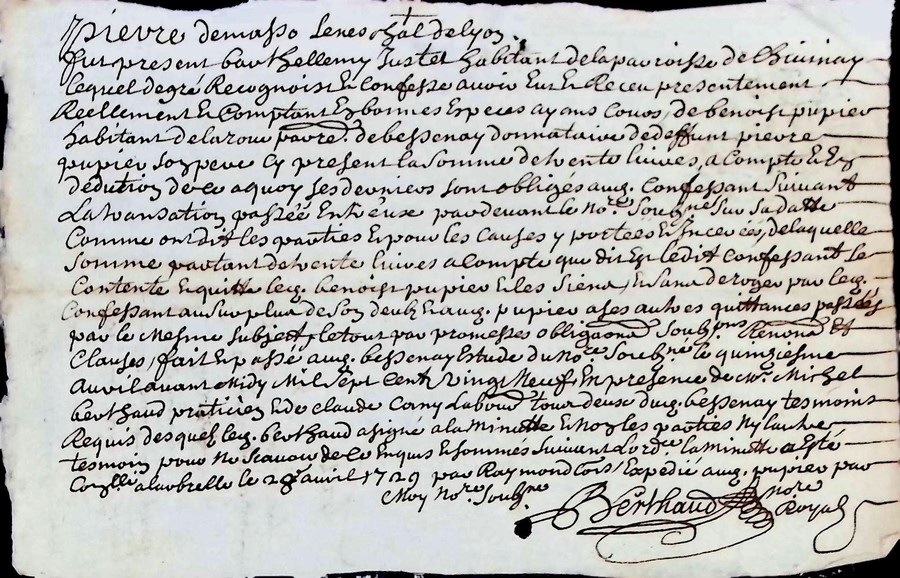 pierre demasso seneschal delyon
fut present barthellemy Justet habitant delaparroisse de Chivinay
lequel degré Recognoist Et Confesse avoir Eu Et Receu presentement
Réellement En Comptant En bonnes Especes ayans Cours, de benoist pupier
habitant delarou parre. debessenay donnataire dedeffunt pierre
pupier son pere Cy present la somme detrente livres, a Compte Et En
dédution de ce aquoy ses derniers sont obligés aud. Confessant Suivant
La transation passée Entreuse pardevant le No.re Soubg.ne Sur Sa datte
Comme ont dit les parties Et pour les Causes y portees Et Incerées, delaquelle
Somme partant detrente livres a Compte que dit Est ledit Confessant Se
Contente Et quitte led. benoist pupier Et les Siens, Et Sans deroger par led.
Confessant au Surplus de Son deub Et aud. pupier a ses autres quittances passées
par le Mesme Subject, le tout par promesses obliga.ons Soubg.ons Renond Et
Clauses, fait Et passé aud. bessenay Estude du No.re Soubg.ne le quinziesme
Avril avant Midy Mil Sept Cent Vingt Neuf En presence de M.e Michel
berthaud praticien Et de claude Corny Labour tour deux dud. bessenay tesmoins
Requis desquels led. berthaud a signé a la Minutte Et Non les parties Ny lautre
tesmoin pour Ne Scavoir de ce Enquis Et Sommés Suivant Lord.ce la minutte a Esté
Con.llée alarbrelle le 28 avril 1729 par Raymond Cors / Expedié aud. pupier par
Moy No.re Soubg.ne
Berthaud no.re
Royal